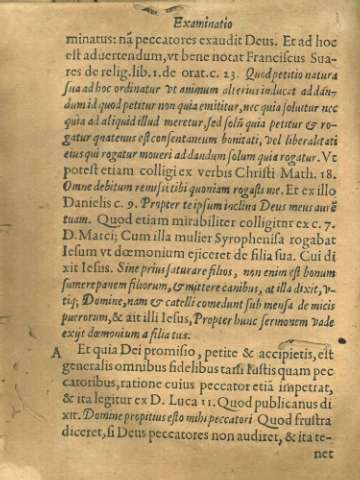 Examinatio
minatus: nã peccatores exaudit Deus. Et ad hoc
est aduertendum, vt bene notat Franciscus Sua-
res de relig. lib. 1. de orat. c. 23. Quod petitio natura
sua ad hoc ordinatur vt animum alterius inducat ad dan-
dum id quod petitur non quia emititur, nec quia soluitur nec
quia ad aliquid illud meretur, sed solũ quia petitur & ro-
gatur quatenus est consentaneum bonitati, vel liberalitati
eius qui rogatur moueri ad dandum solum quia rogatur. Vt
potest etiam colligi ex verbis Christi Math. 18.
Omne debitum remisi tibi quoniam rogasti me. Et ex illo
Danielis c. 9. Propter te ipsum inclina Deus meus aurẽ
tuam. Quod etiam mirabiliter colligitur ex c. 7.
D. Marci; Cum illa mulier Syrophenisa rogabat
Iesum vt dæmonium ejiceret de filia sua. Cui di
xit Iesus. Sine prius saturare filios, non enim est bonum
sumere panem filiorum, & mittere canibus, at illa dixit, v-
tiq; Domine, nam & catelli comedunt sub mensa de micis
puerorum, & ait illi Iesus, Propter hunc sermonem vade
exijt dæmonium a filia tua.
A Et quia Dei promisio, petite & accipietis, est
generalis omnibus fidelibus tam iustis quam pec
catoribus, ratione cuius peccator etiã impetrat,
& ita legitur ex D. Luca 11. Quod publicanus di
xit. Domine propitius esto mihi peccatori Quod frustra
diceret, si Deus peccatores non audiret, & ita te-
net